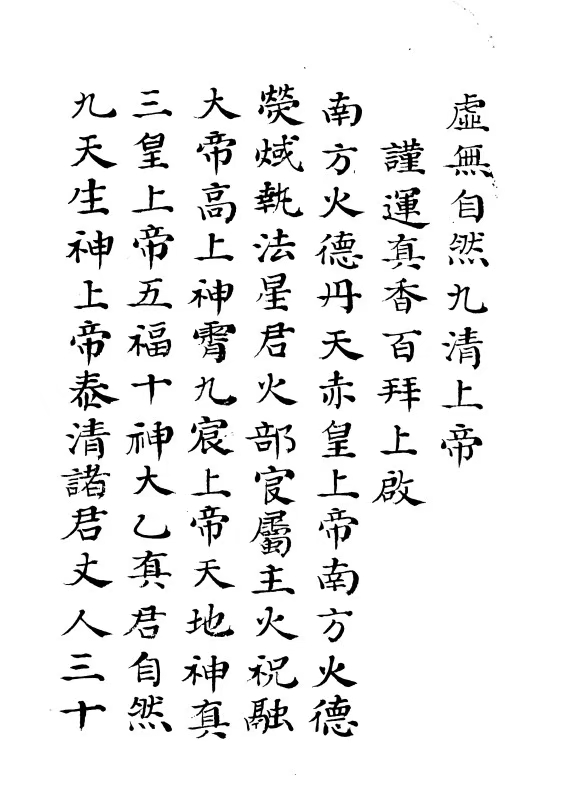 虛無自然九清上帝
謹運真香百拜上啟
南方火德丹天赤皇上帝南方火德
熒惑執法星君火部官屬主火祝融
大帝高上神霄九宸上帝天地神真
三皇上帝五福十神大乙真君自然
九天生神上帝泰清諸君丈人三十